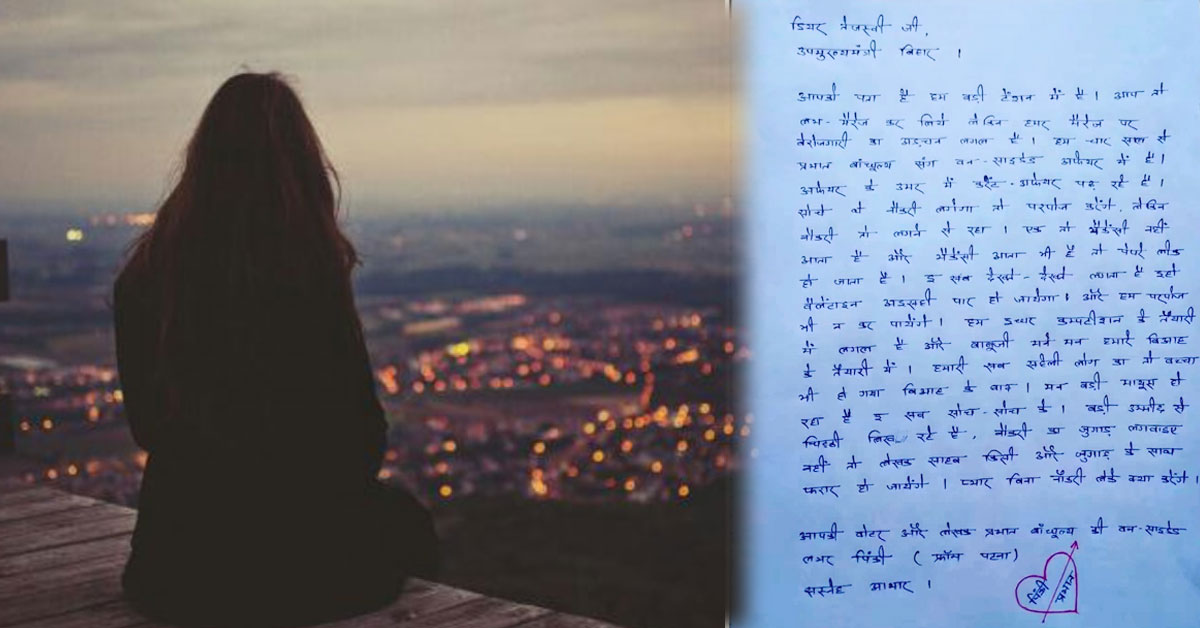 डियर तेजस्वी जी,
उपमुख्यमंत्री बिहार ।
आपको पता है हम बड़ी टेंशन में है । आप तो
लभ - मैरेज कर लिये लेकिन हमार मैरेज पर
बेरोजगारी का अड़चन लगल है । हम चार साल से
प्रभात बाँधुल्य संग वन - साइडेड अफेयर में है ।
अफेयर के उमर में करेंट - अफेयर पढ़ रहे है ।
सोचे थे नौकरी लगेगा तो परपोज करेंगे, लेकिन
नौकरी तो लगने से रहा । एक तो भैकेंसी नहीं
आता है और भैकेंसी आता भी है तो पेपरे लीक
हो जाता है । इ सब देखते - देखते लगता है इहो
वैलेंटाइन अइसही पार हो जायेगा । और हम परपोज
भी न कर पायेंगे । हम इधर कम्पटीशन के तैयारी
में लगल है और बाबूजी मने मन हमारे बिआह
के तैयारी में । हमारी सब सहेली लोग का तो बच्चा
भी हो गया बिआह के बाद । मन बड़ी मायूस हो
रहा है इ सब सोच - सोच के । बड़ी उम्मीद से
चिठ्ठी लिख रहे है, नौकरी का जुगाड़ लगवाइए
नहीं तो लेखक साहब किसी और जुगाड़ के साथ
फरार हो जायेंगे । प्यार बिना नौकरी लेके क्या करेंगे ।
आपकी वोटर और लेखक प्रभात बाँधुल्य की वन - साइडेड
लभर पिंकी ( फ्रॉम पटना )
सस्नेह आभार ।
पिंकी प्रभात